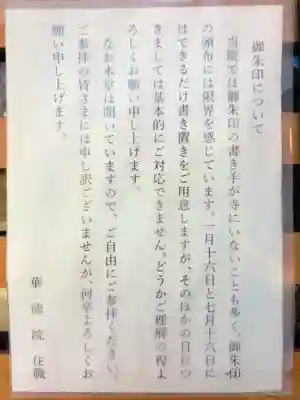 御朱印について
当院では御朱印の書き手が寺にいないことも多く、御朱印
の頒布には限界を感じています。一月十六日と七月十六日に
はできるだけ書き置きをご用意しますが、そのほかの日につ
きましては基本的にご対応できません。どうかご理解の程よ
ろしくお願い申し上げます。
なお本堂は開いていますので、ご自由にご参拝ください。
ご参拝の皆さまには申し訳ございませんが、何卒よろしくお
願い申し上げます。
華徳院 住職